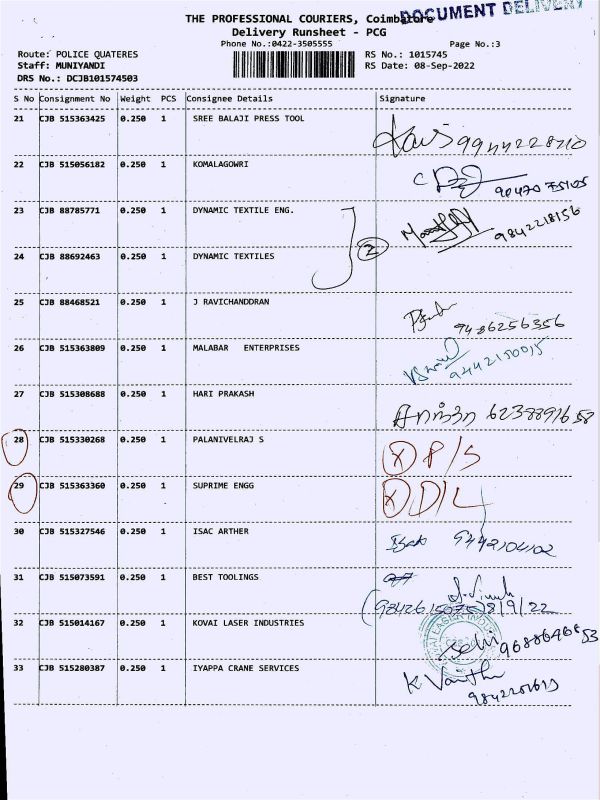 THE PROFESSIONAL COURIERS, Coimbatore
DOCUMENT DELIVERY
Delivery Runsheet - PCG
Phone No.:0422-3505555
Page No.:3
Route: POLICE QUATERES
RS No.: 1015745
Staff: MUNIYANDI
RS Date: 08-Sep-2022
DRS No.: DCJB101574503
S No Consignment No Weight PCS Consignee Details Signature
21 CJB 515363425 0.250 1 SREE BALAJI PRESS TOOL
9944228710
22 CJB 515056182 0.250 1 KOMALAGOWRI
23 CJB 88785771 0.250 1 DYNAMIC TEXTILE ENG.
9842218156
2
24 CJB 88692463 0.250 1 DYNAMIC TEXTILES
25 CJB 88468521 0.250 1 J RAVICHANDDRAN
9486256356
26 CJB 515363809 0.250 1 MALABAR ENTERPRISES
9442150015
27 CJB 515308688 0.250 1 HARI PRAKASH
6238891658
28 CJB 515330268 0.250 1 PALANIVELRAJ S
X P/S
29 CJB 515363360 0.250 1 SUPRIME ENGG
X D/L
30 CJB 515327546 0.250 1 ISAC ARTHER
Isak 9442104102
31 CJB 515073591 0.250 1 BEST TOOLINGS
8/9/22
32 CJB 515014167 0.250 1 KOVAI LASER INDUSTRIES
33 CJB 515280387 0.250 1 IYAPPA CRANE SERVICES
K